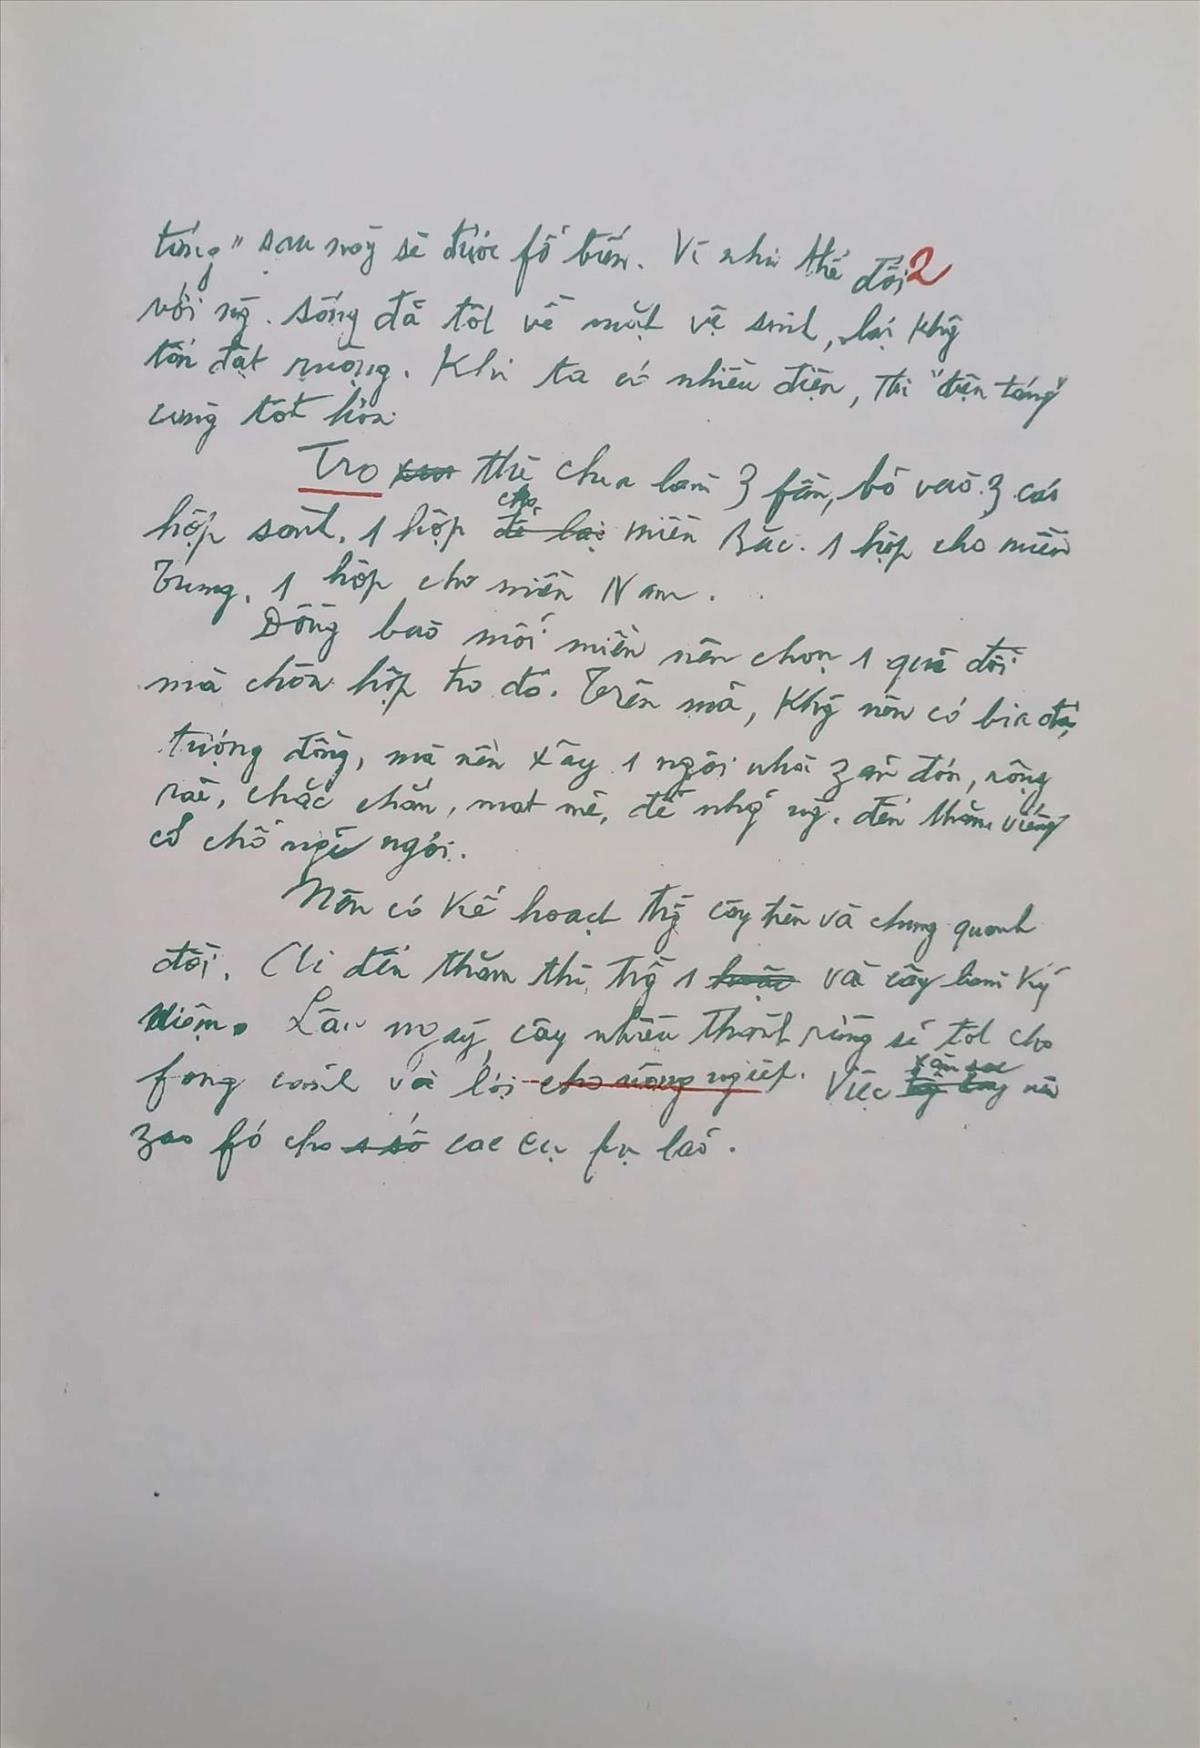 táng" sau này sẽ được fổ biến. Vì như thế đối 2
với ng. sống đã tốt về mặt vệ sinh, lại khg
tốn đất ruộng. Khi ta có nhiều điện, thì "điện táng"
càng tốt hơn.
Tro xương thì chia làm 3 fần, bỏ vào 3 cái
hộp sành. 1 hộp để lại cho miền Bắc. 1 hộp cho miền
Trung. 1 hộp cho miền Nam.
Đồng bào mỗi miền nên chọn 1 quả đồi
mà chôn hộp tro đó. Trên mả, khg nên có bia đá,
tượng đồng, mà nên xây 1 ngôi nhà zản đơn, rộng
rãi, chắc chắn, mát mẻ, để nhữg ng. đến thăm viếng
có chỗ nghỉ ngơi.
Nên có kế hoạch trồg cây trên và chung quanh
đồi. Ai đến thăm thì trồg 1 hoặc vài cây làm kỷ
niệm. Lâu ngày, cây nhiều thành rừng sẽ tốt cho
fong cảnh và lợi cho nông ngiệp. Việc săn sóc nên
zao fó cho 1 số các cụ fụ lão.